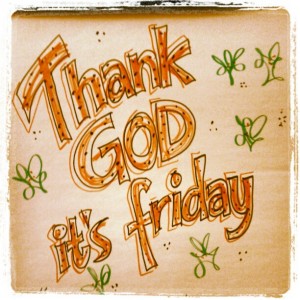 Thank
GOD
it's friday